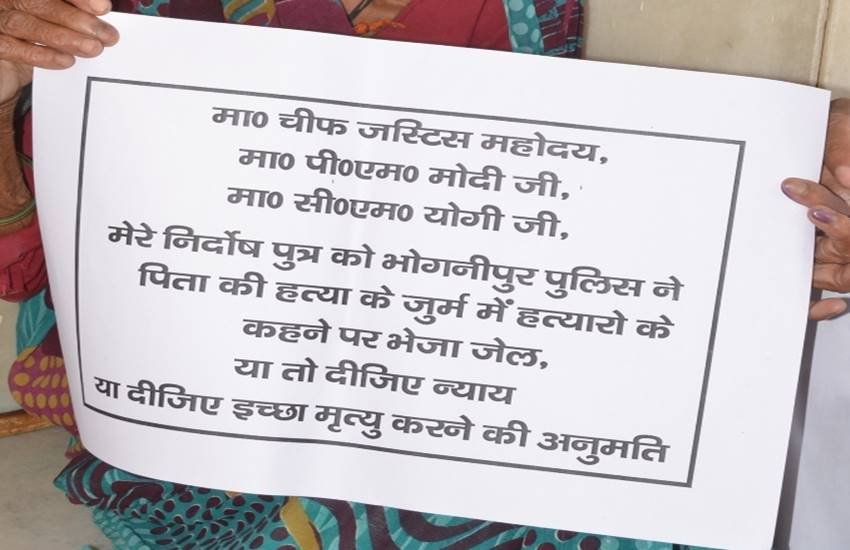 मा0 चीफ जस्टिस महोदय,
मा0 पी0एम0 मोदी जी,
मा0 सी0एम0 योगी जी,
मेरे निर्दोष पुत्र को भोगनीपुर पुलिस ने
पिता की हत्या के जुर्म में हत्यारो के
कहने पर भेजा जेल,
या तो दीजिए न्याय
या दीजिए इच्छा मृत्यु करने की अनुमति